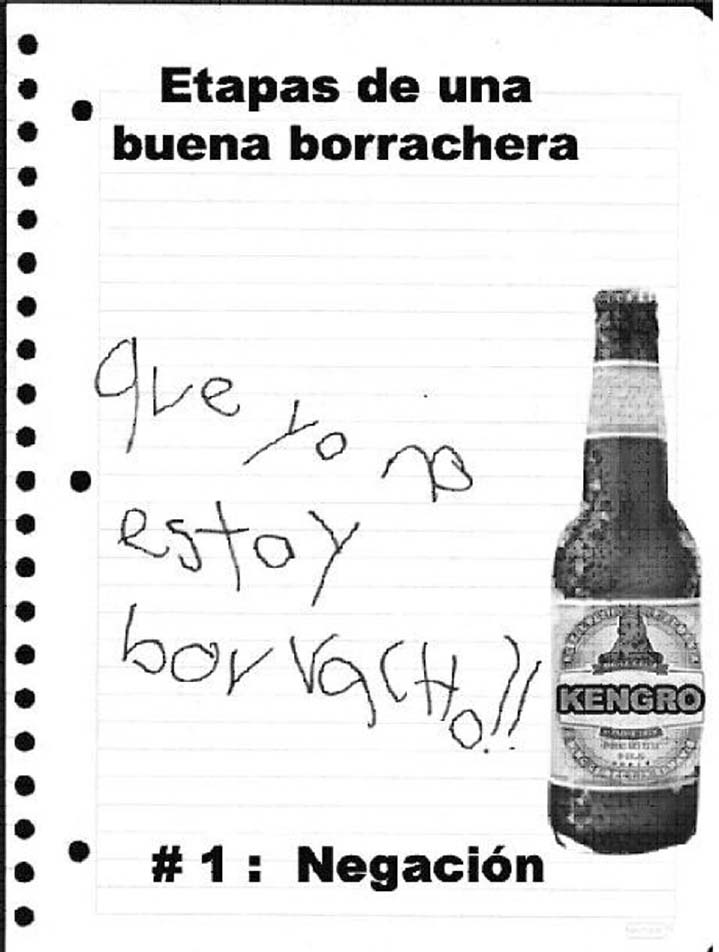 Etapas de una
buena borrachera
que yo no
estoy
borracho!!
KENGRO
# 1 : Negación